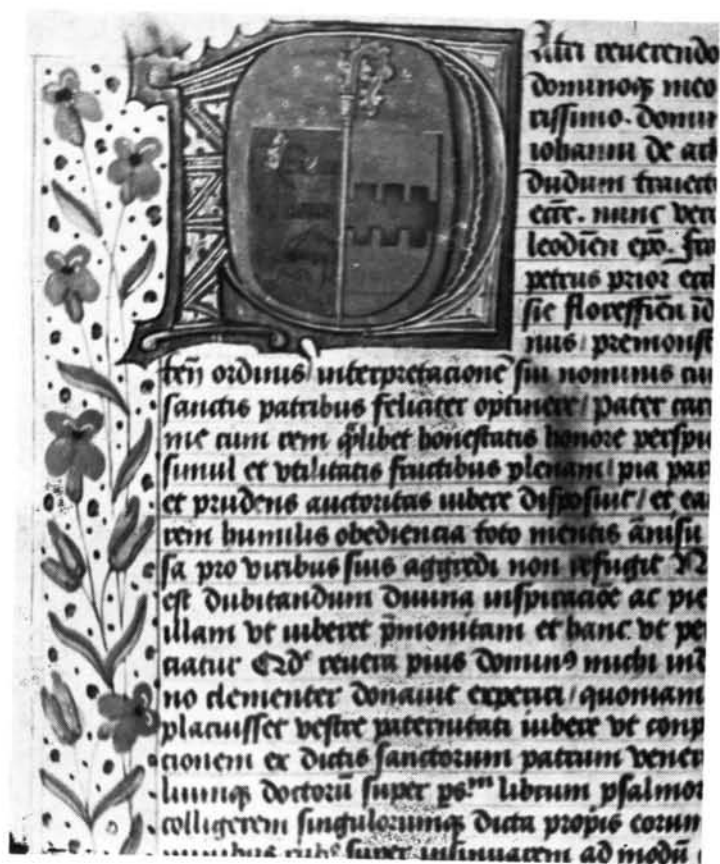 Atri reuerendo
dominoq; meo
rissimo. domin
iohanni de ar
dudum traiect
ecce. nunc ver
leodien epo. fra
petrus prior eccl
sie floreffien id
nus / premonst
ten ordinis / interpretacione siu nominis cu
sanctis patribus feliciter optinere / pater cari
me cum rem qlibet honestatis honore perspi
simul et vtilitatis fructibus plenam / pia pa
et prudens auctoritas iubere disposuit / et ea
rem humilis obediencia toto mentis anisu
sa pro viribus suis aggredi non refugit N
est dubitandum diuina inspiracioe ac pie
illam vt iuberet pmonitam et hanc vt pe
ciatur Qd reuera pius domin9 michi ind
no clementer donauit experiri / quoniam
placuisset vestre paternitati iubere vt conp
cionem ex dictis sanctorum patrum vener
liumq; doctorū super ps.m librum psalmor
colligerem singulorumq; dicta propis eorum
minibus super insinuarem ad modū